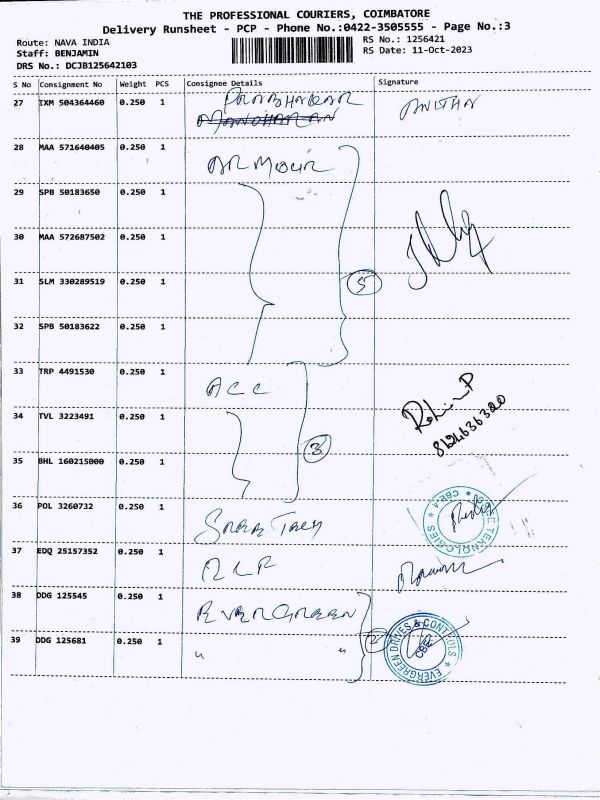 THE PROFESSIONAL COURIERS, COIMBATORE
Delivery Runsheet - PCP - Phone No.:0422-3505555 - Page No.:3
Route: NAVA INDIA RS No.: 1256421
Staff: BENJAMIN RS Date: 11-Oct-2023
DRS No.: DCJB125642103
S No Consignment No Weight PCS Consignee Details Signature
27 IXM 504364460 0.250 1 PRABHAKAR
MANOHARAN
28 MAA 571640405 0.250 1 ARMOUR
29 SPB 50183650 0.250 1
30 MAA 572687502 0.250 1
31 SLM 330289519 0.250 1 5
32 SPB 50183622 0.250 1
33 TRP 4491530 0.250 1 ACC
34 TVL 3223491 0.250 1
35 BHL 160215000 0.250 1 3
36 POL 3260732 0.250 1
TEKNOLOGIES * CBE-4 *
37 EDQ 25157352 0.250 1
38 DDG 125545 0.250 1 EVERGREEN
39 DDG 125681 0.250 1 " " 2
EVERGREEN DRIVES & CONTROLS * CBE *